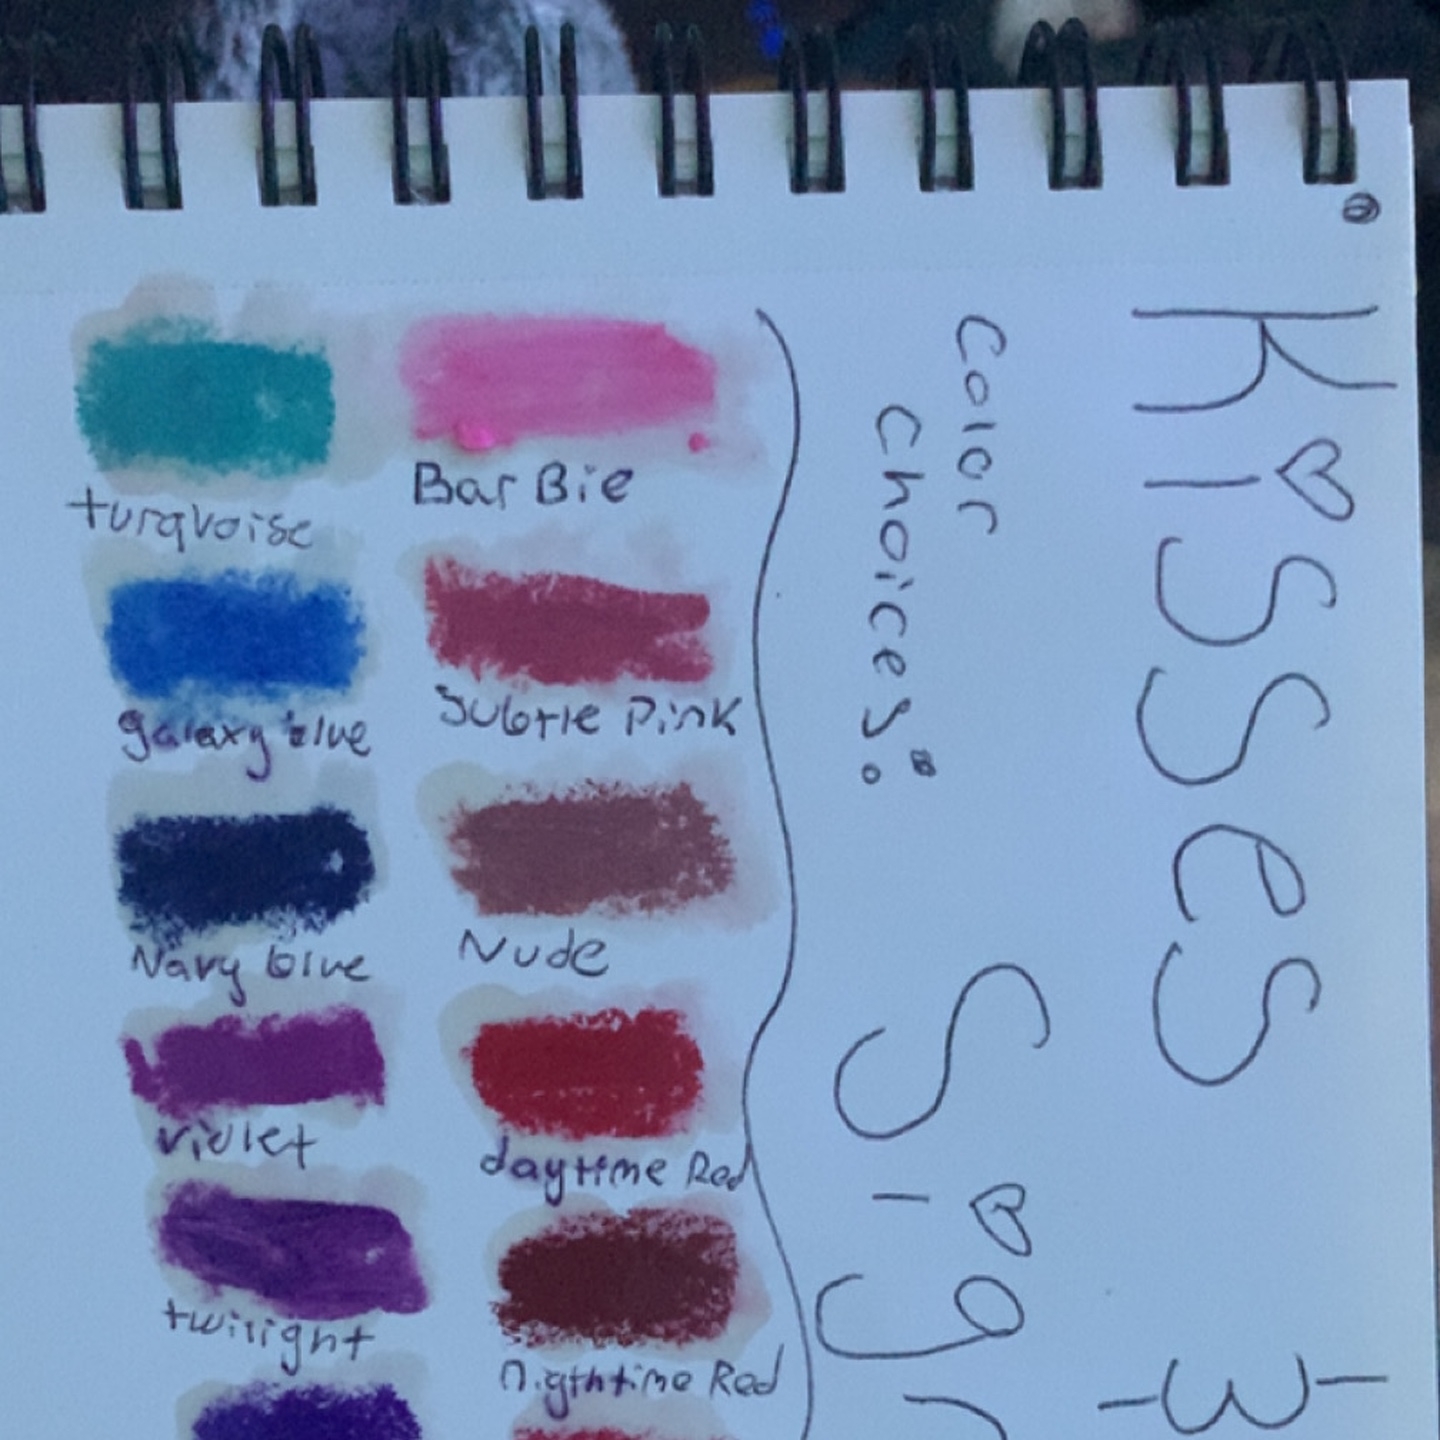 Kisses
Color
Choices:
Bar Bie
Subtle Pink
Nude
daytime Red
nigthtime Red
turqvoise
galaxy blue
Navy blue
violet
twilight